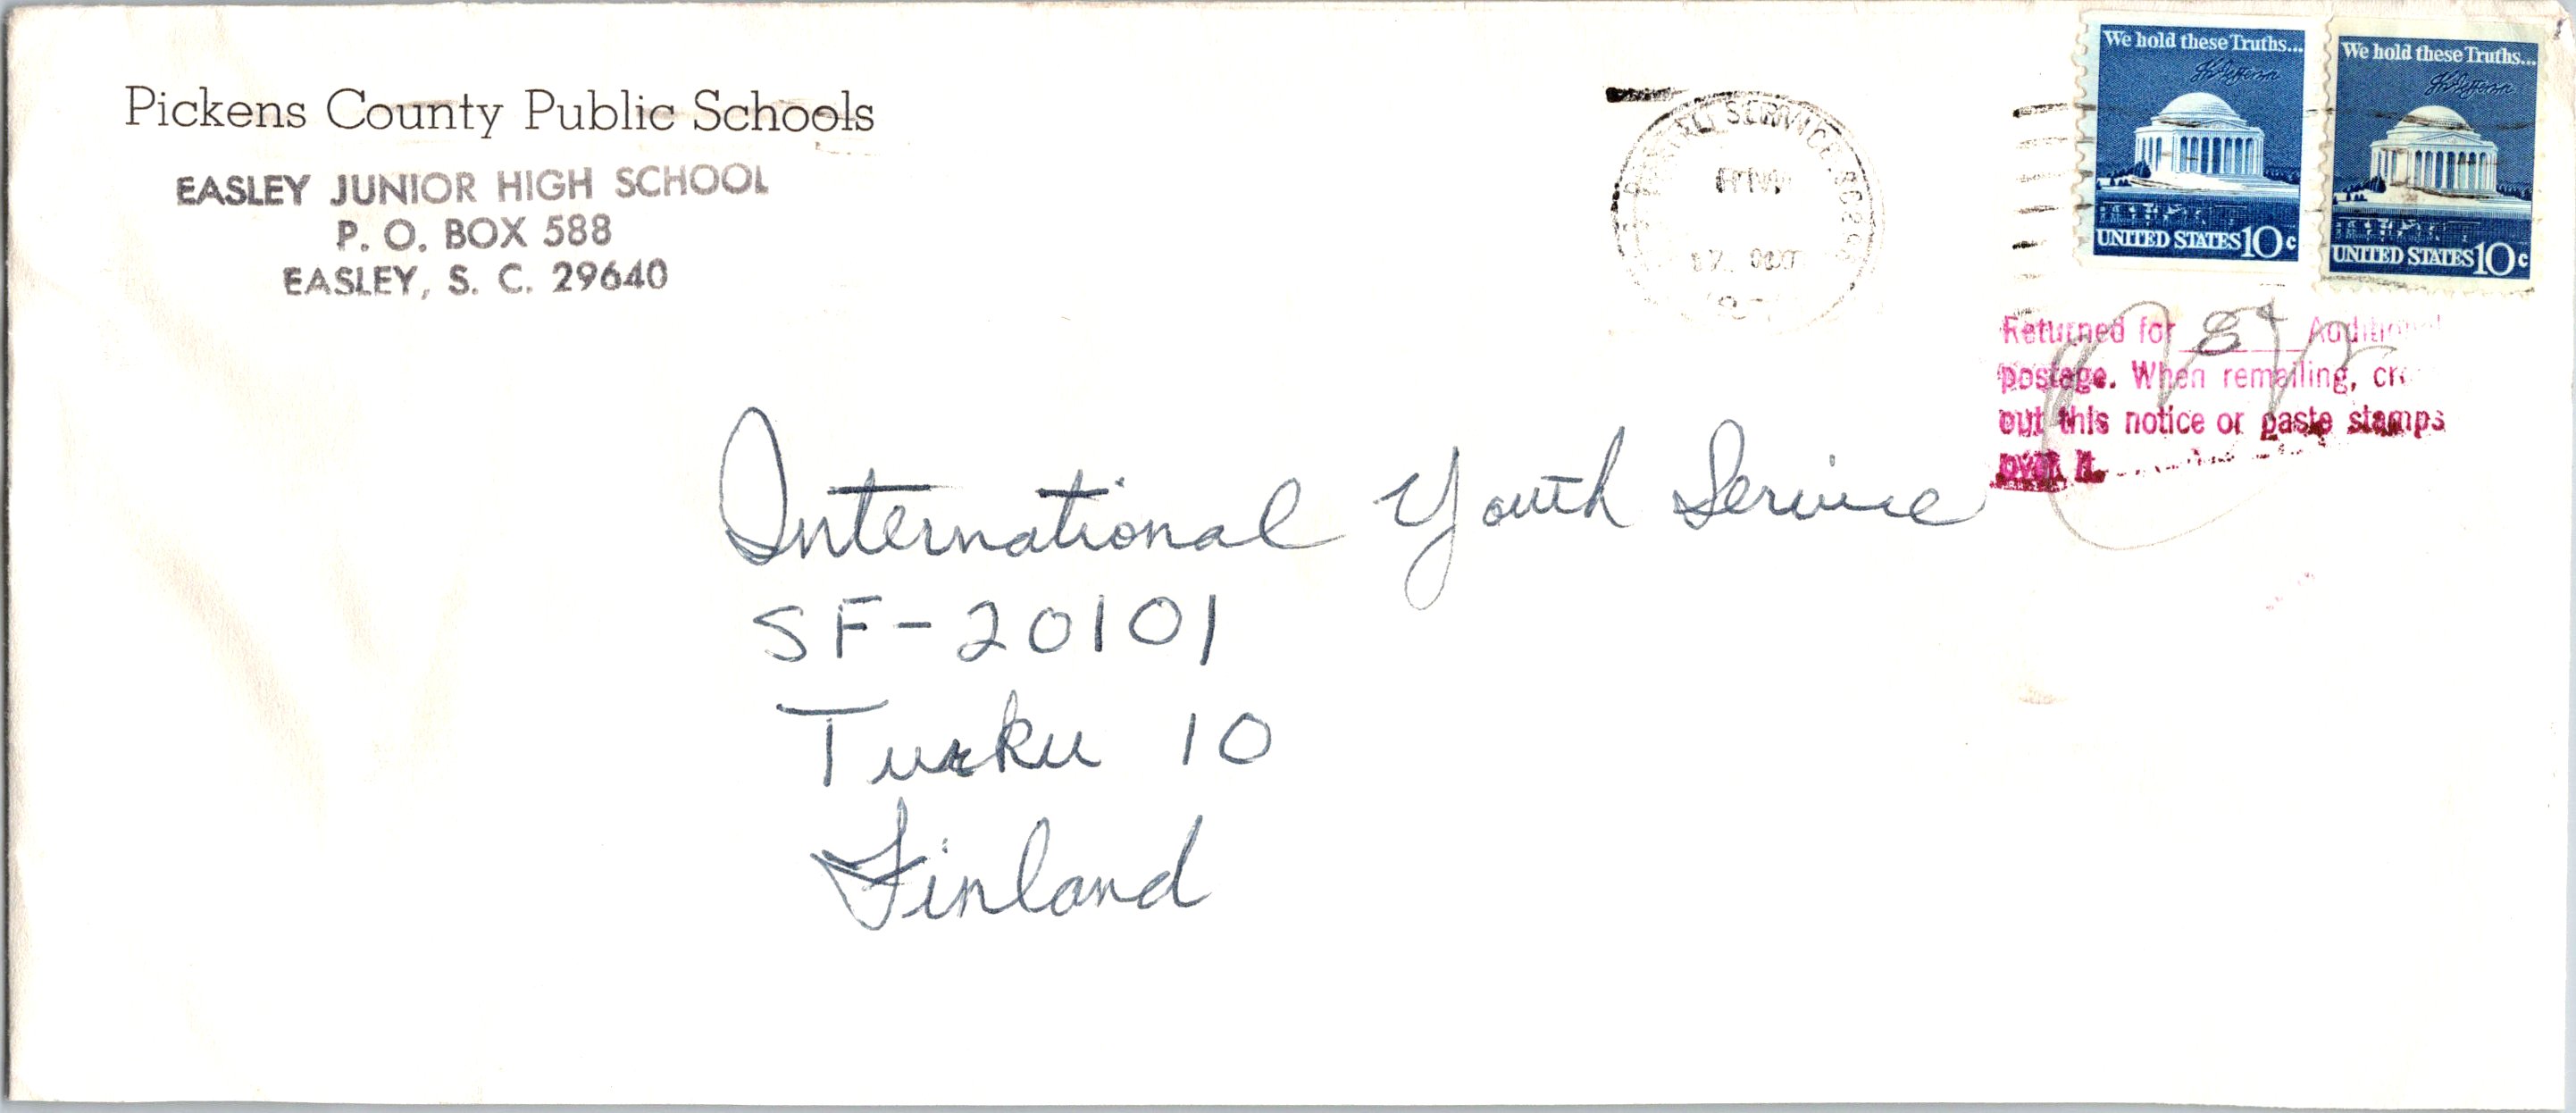 Pickens County Public Schools
EASLEY JUNIOR HIGH SCHOOL
P. O. BOX 588
EASLEY, S. C. 29640
SERVICE
PM
We hold these Truths...
Th Jefferson
UNITED STATES 10c
We hold these Truths...
Th Jefferson
UNITED STATES 10c
Returned for 8¢ Additional
postage. When remailing, cross
out this notice or paste stamps
over it.
International Youth Service
SF-20101
Turku 10
Finland